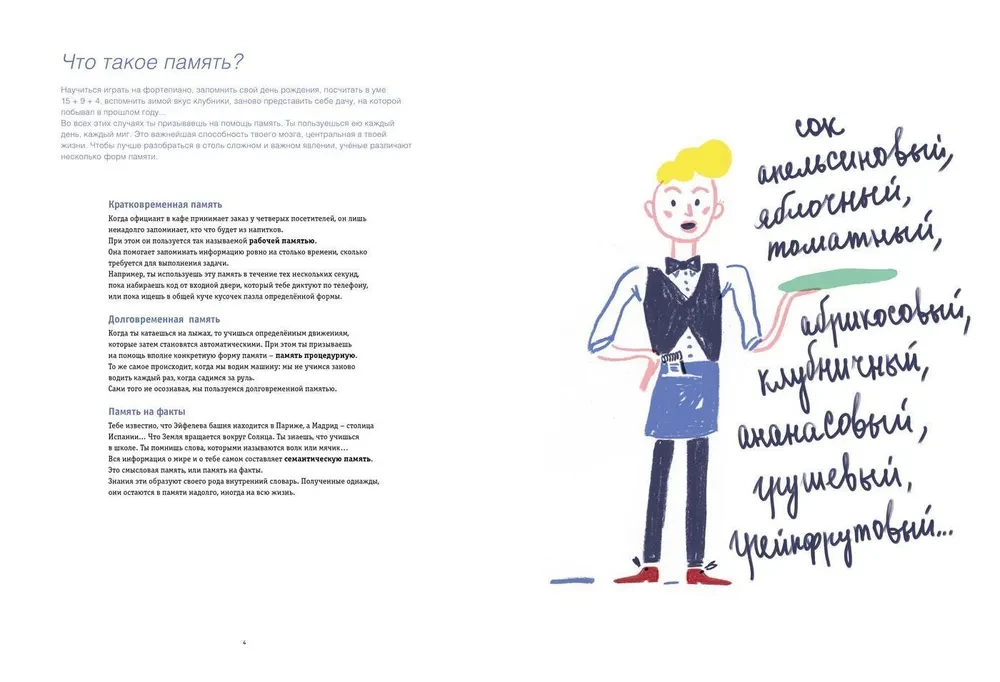 Что такое память?
Научиться играть на фортепиано, запомнить свой день рождения, посчитать в уме
15 + 9 + 4, вспомнить зимой вкус клубники, заново представить себе дачу, на которой
побывал в прошлом году...
Во всех этих случаях ты призываешь на помощь память. Ты пользуешься ею каждый
день, каждый миг. Это важнейшая способность твоего мозга, центральная в твоей
жизни. Чтобы лучше разобраться в столь сложном и важном явлении, учёные различают
несколько форм памяти.
Кратковременная память
Когда официант в кафе принимает заказ у четверых посетителей, он лишь
ненадолго запоминает, кто что будет из напитков.
При этом он пользуется так называемой рабочей памятью.
Она помогает запоминать информацию ровно на столько времени, сколько
требуется для выполнения задачи.
Например, ты используешь эту память в течение тех нескольких секунд,
пока набираешь код от входной двери, который тебе диктуют по телефону,
или пока ищешь в общей куче кусочек пазла определённой формы.
Долговременная память
Когда ты катаешься на лыжах, то учишься определённым движениям,
которые затем становятся автоматическими. При этом ты призываешь
на помощь вполне конкретную форму памяти – память процедурную.
То же самое происходит, когда мы водим машину: мы не учимся заново
водить каждый раз, когда садимся за руль.
Сами того не осознавая, мы пользуемся долговременной памятью.
Память на факты
Тебе известно, что Эйфелева башня находится в Париже, а Мадрид – столица
Испании... Что Земля вращается вокруг Солнца. Ты знаешь, что учишься
в школе. Ты помнишь слова, которыми называются волк или мячик...
Вся информация о мире и о тебе самом составляет семантическую память.
Это смысловая память, или память на факты.
Знания эти образуют своего рода внутренний словарь. Полученные однажды,
они остаются в памяти надолго, иногда на всю жизнь.
4
сок
апельсиновый,
яблочный,
томатный,
абрикосовый,
клубничный,
ананасовый,
грушевый,
грейпфрутовый...